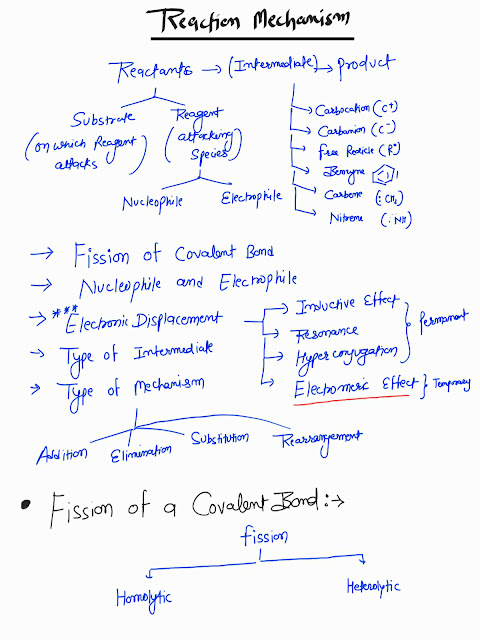 Reaction Mechanism
Reactants → (Intermediate) → Product
Substrate
(on which Reagent attacks)
Reagent
(attacking Species)
Nucleophile
Electrophile
Carbocation (C+)
Carbanion (C-)
free Radicle (R•)
Benzyne
Carbene (:CH2)
Nitrene (:NH)
→ Fission of Covalent Bond
→ Nucleophile and Electrophile
→ *** Electronic Displacement
Inductive Effect
Resonance
Hyperconjugation
} permanent
Electromeric Effect } Temporary
→ Type of Intermediate
→ Type of Mechanism
Addition
Elimination
Substitution
Rearrangement
• Fission of a Covalent Bond :→
fission
Homolytic
Heterolytic